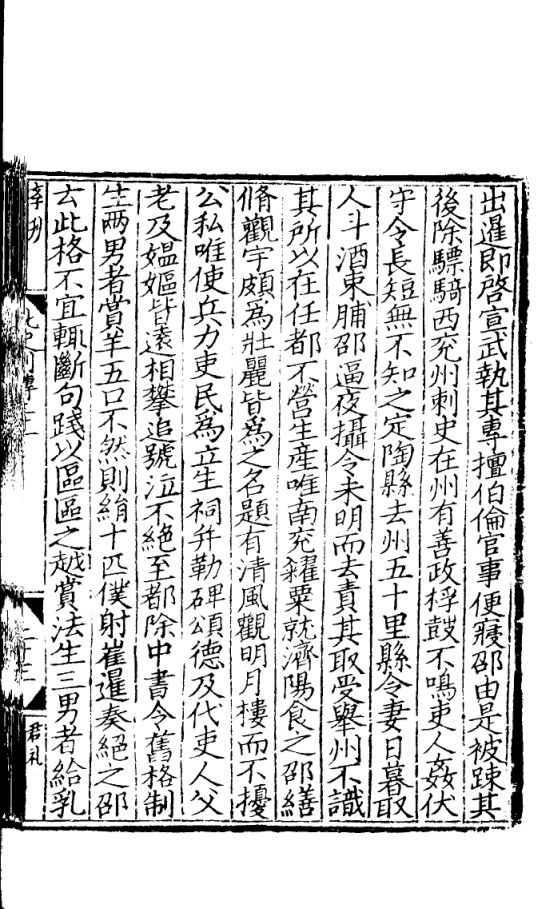 出暹即啓宣武執其專擅伯倫官事便寢邵由是被踈其
後除驃騎西兖州刺史在州有善政桴鼓不鳴吏人姦伏
守令長短無不知之定陶縣去州五十里縣令妻日暮取
人斗酒束脯邵逼夜攝令未明而去責其取受舉州不識
其所以在任都不營生產唯南兖糴粟就濟陽食之邵繕
脩觀宇頗爲壯麗皆爲之名題有清風觀明月樓而不擾
公私唯使兵力吏民爲立生祠并勒碑頌德及代吏人父
老及媪嫗皆遠相攀追號泣不絕至都除中書令舊格制
生兩男者賞羊五口不然則絹十匹僕射崔暹奏絕之邵
去此格不宜輒斷句踐以區區之越賞法生三男者給乳
君礼